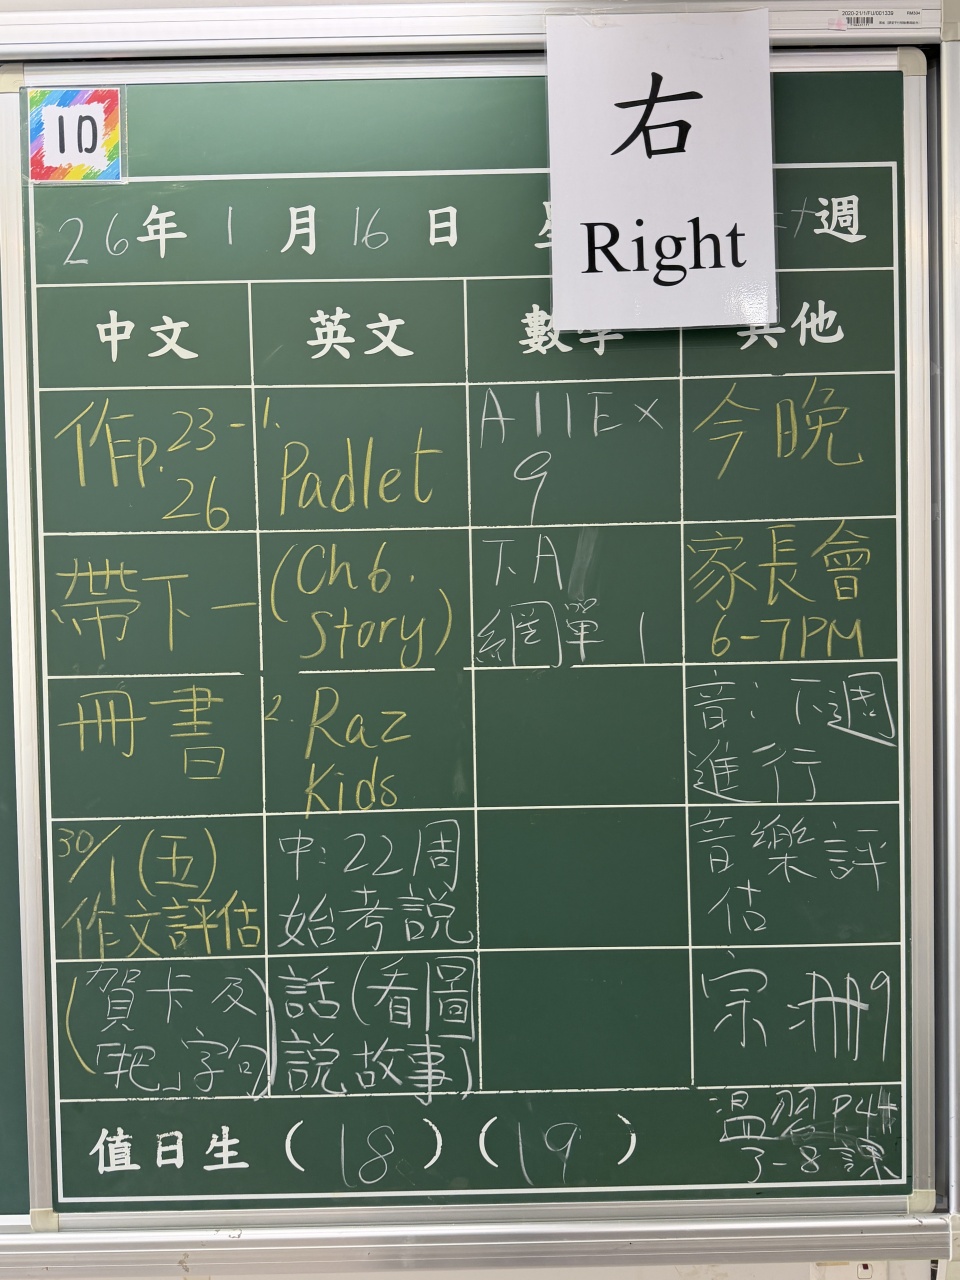 2020-21/1/FU/001339
RM304
右
Right
1D
26年1月16日
週
中文
英文
數學
其他
作p.23-
26
帶下一
冊書
30/1(五)
作文評估
(賀卡及
「把」字句)
1.
Padlet
(Ch 6.
Story)
2. Raz
Kids
中:22周
始考說
話(看圖
說故事)
A11Ex
9
T.A
網單 1
今晚
家長會
6-7PM
音:下週
進行
音樂評
估
宗:冊9
溫習P.44
3-8課
值日生(18)(19)